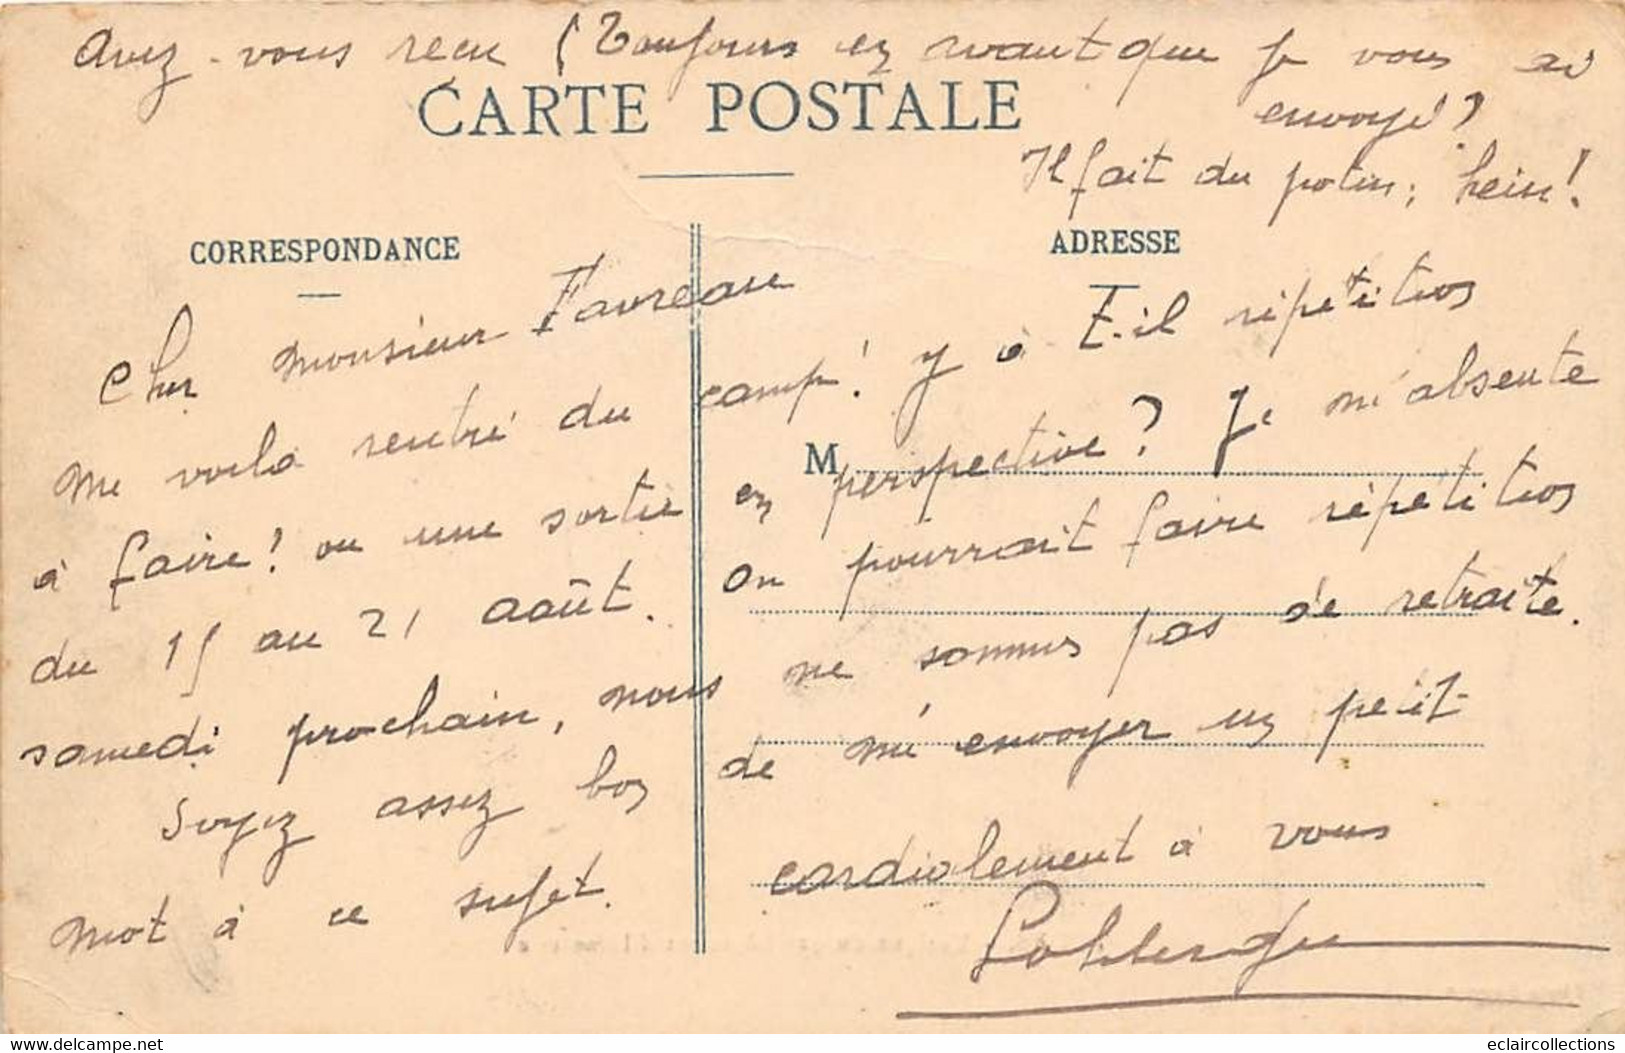 Avez-vous reçu (Toujours en avant que je vous ai
envoyé?
CARTE POSTALE
Il fait du potin, hein!
CORRESPONDANCE
ADRESSE
Cher Monsieur Favreau
Me voilà rentré du camp! y a t-il répétition
à faire! ou une sortie en perspective? Je m'absente
M
du 15 au 21 août. On pourrait faire répétition
samedi prochain, nous ne sommes pas de retraite.
Soyez assez bon de m'envoyer un petit
mot à ce sujet. cordialement à vous
delcampe.net
eclaircollections